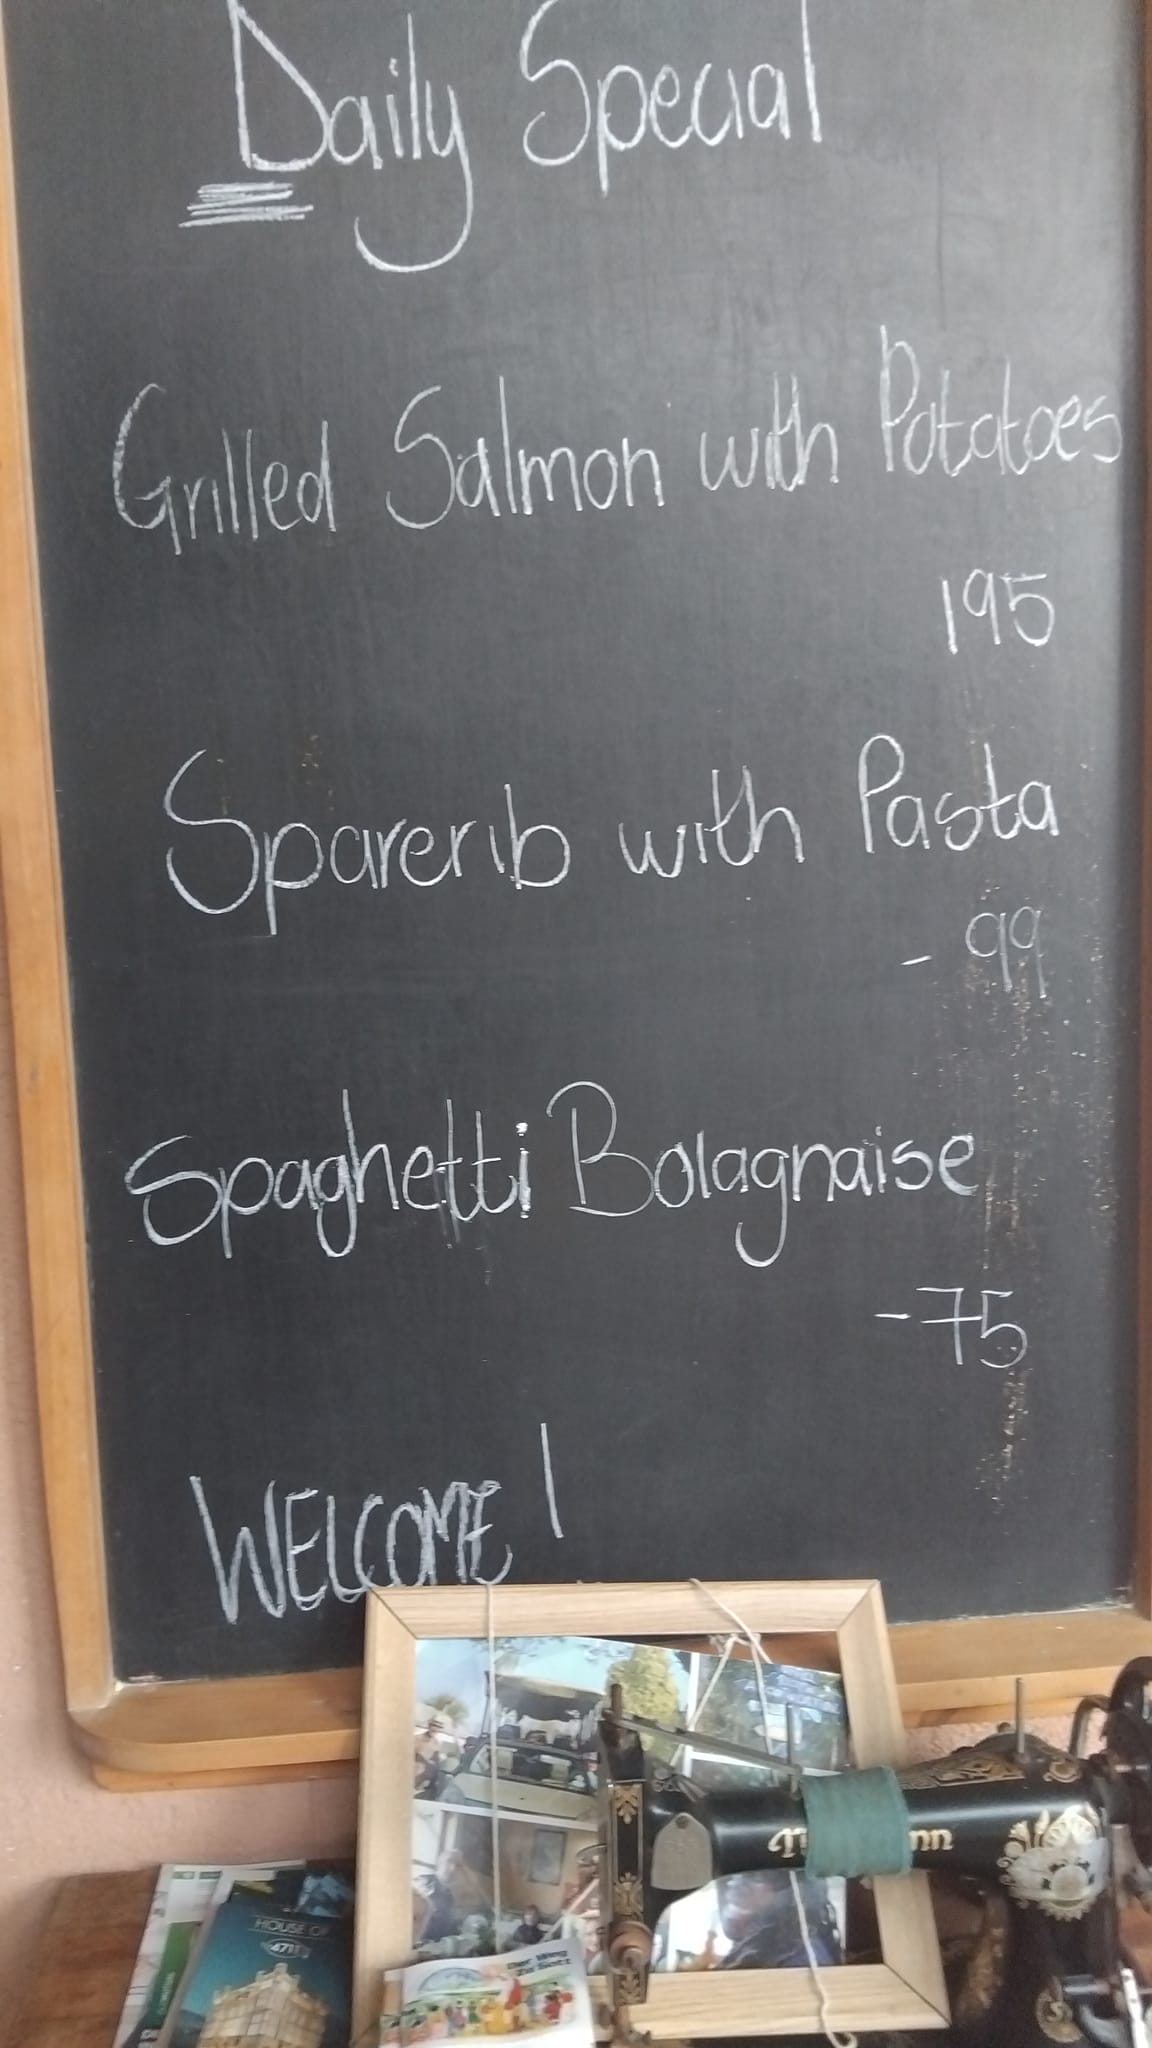 Daily Special
Grilled Salmon with Potatoes
195
Sparerib with Pasta
- 99
Spaghetti Bolagnaise
- 75
WELCOME!
HOUSE OF
4711
Der Weg
zu Gott